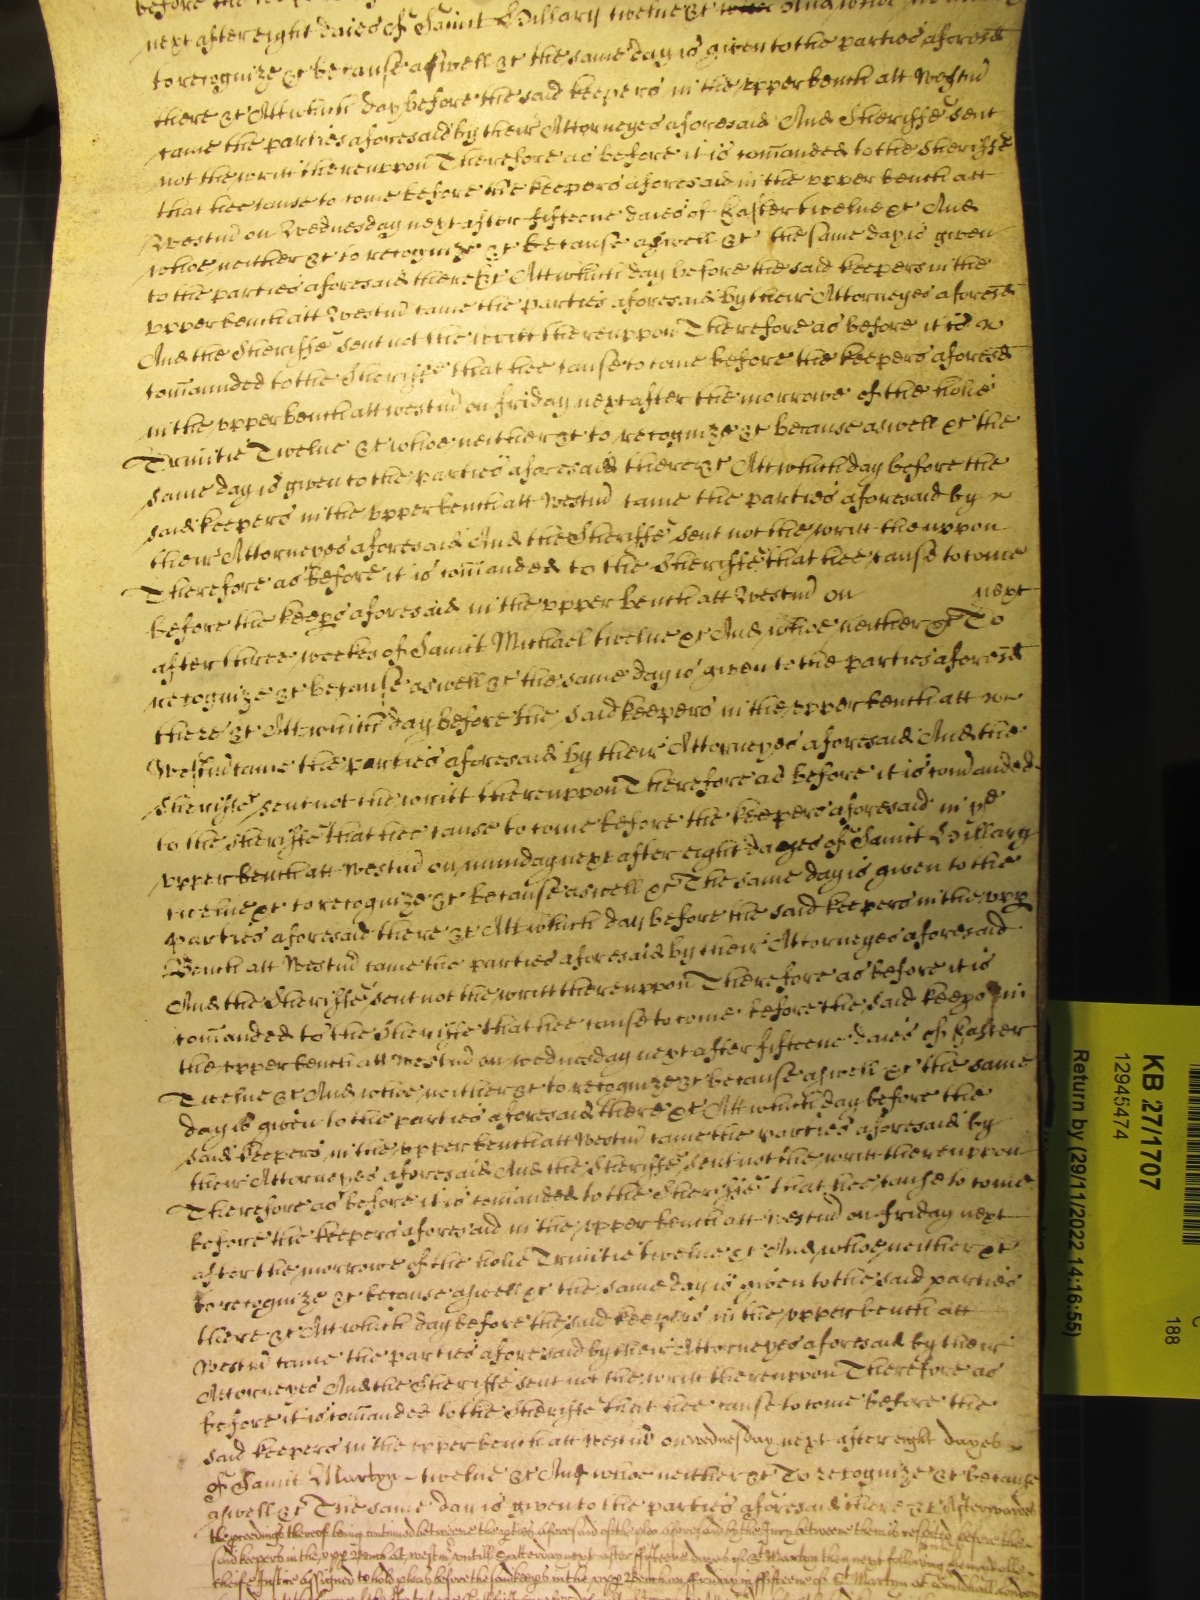 next after eight daies of Saint Hillary twelve &c And whoe
to recognize &c because aswell &c the same day is given to the parties aforesd
there &c Att which day before the said keepers in the upper bench att Westm̄
came the parties aforesaid by their Attorneyes aforesaid And Sheriffe sent
not the writt thereuppon Therefore as before it is com̄anded to the Sheriffe
that hee cause to come before the keepers aforesaid in the upper bench att
Westm̄ on Wednesday next after fifteene daies of Easter twelve &c And
whoe neither &c to recognize &c because aswell &c the same day is given
to the parties aforesaid there &c Att which day before the said keepers in the
upper bench att Westm̄ came the parties aforesaid by their Attorneyes aforesd
And the Sheriffe sent not the writt thereuppon Therefore as before it is
com̄aunded to the Sheriffe that hee cause to come before the keepers aforesd
in the upper bench att westm̄ on friday next after the morrowe of the holie
Trinitie Twelve &c whoe neither &c to recognize &c because aswell &c the
same day is given to the parties aforesaid there &c Att which day before the
said keepers in the upper bench att Westm̄ came the parties aforesaid by
their Attorneyes aforesaid And the Sheriffe sent not the writt theruppon
Therefore as before it is com̄anded to the Sheriffe that hee cause to come
before the keeps aforesaid in the upper bench att Westm̄ on next
after three weekes of Saint Michael twelve &c And whoe neither &c To
recognize &c because aswell &c the same day is given to the parties aforesd
there &c Att which day before the said keepers in the upper bench att
Westm̄ came the parties aforesaid by their Attorneyes aforesaid And the
Sheriffe sent not the writt thereuppon Therefore as before it is com̄anded
to the Sheriffe that hee cause to come before the keepers aforesaid in ye
upper bench att Westm̄ on munday next after eight dayes of Saint Hillary
twelve &c to recognize &c because aswell &c The same day is given to the
parties aforesaid there &c Att which day before the said keepers in the upp
Bench att Westm̄ came the parties aforesaid by their Attorneyes aforesaid
And the Sheriffe sent not the writt thereuppon Therefore as before it is
com̄anded to the Sheriffe that hee cause to come before the said keeps in
the upper bench att Westm̄ on wednesday next after fifteene daies of Easter
Twelve &c And whoe neither &c to recognize &c because aswell &c the same
day is given to the parties aforesaid there &c Att which day before the
said keepers in the upper bench att Westm̄ came the parties aforesaid by
their Attorneyes aforesaid And the Sheriffe sent not the writt thereuppon
Therefore as before it is com̄anded to the Sheriffe that hee cause to come
before the keepers aforesaid in the upper bench att westm̄ on friday next
after the morrowe of the holie Trinitie twelve &c And whoe neither &c
to recognize &c because aswell &c the same day is given to the said parties
there &c Att which day before the said keepers in the upper bench att
Westm̄ came the parties aforesaid by their Attorneyes aforesaid by their
Attorneyes And the Sheriffe sent not the writt thereuppon Therefore as
before it is com̄anded to the Sheriffe that hee cause to come before the
said keepers in the upper bench att westm̄ on wednesday next after eight dayes
of Saint Martyn twelve &c And whoe neither &c To recognize &c because
aswell &c The same day is given to the parties aforesaid there &c Afterwards
the pceedings thereof being continued betweene the pties aforesaid of the plea aforesaid by the Jury betweene them is respited before the
said keepers in the upp Bench at westm̄ untill Satterday next after fifteene daies of St Martyn then next following
cheife Justice assigned to hold pleas before the said keeps in the upp Bench on Friday in fifteene of St Martyn at Guildhall London
KB 27/1707
12945474
Return by (29/11/2022 14:16:55)
C
188